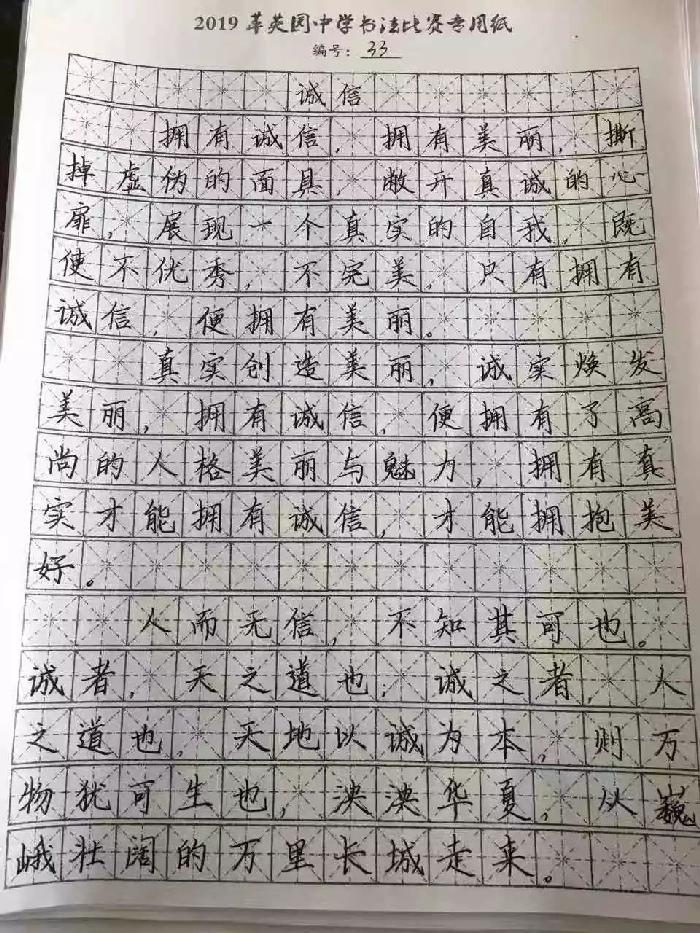 2019菁英园中学书法比赛专用纸
编号：33
诚信
拥有诚信，拥有美丽，撕
掉虚伪的面具，敞开真诚的心
扉，展现一个真实的自我，既
使不优秀，不完美，只有拥有
诚信，便拥有美丽。
真实创造美丽，诚实焕发
美丽，拥有诚信，便拥有了高
尚的人格美丽与魅力，拥有真
实才能拥有诚信，才能拥抱美
好。
人而无信，不知其可也。
诚者，天之道也，诚之者，人
之道也，天地以诚为本，则万
物犹可生也，泱泱华夏，从巍
峨壮阔的万里长城走来。